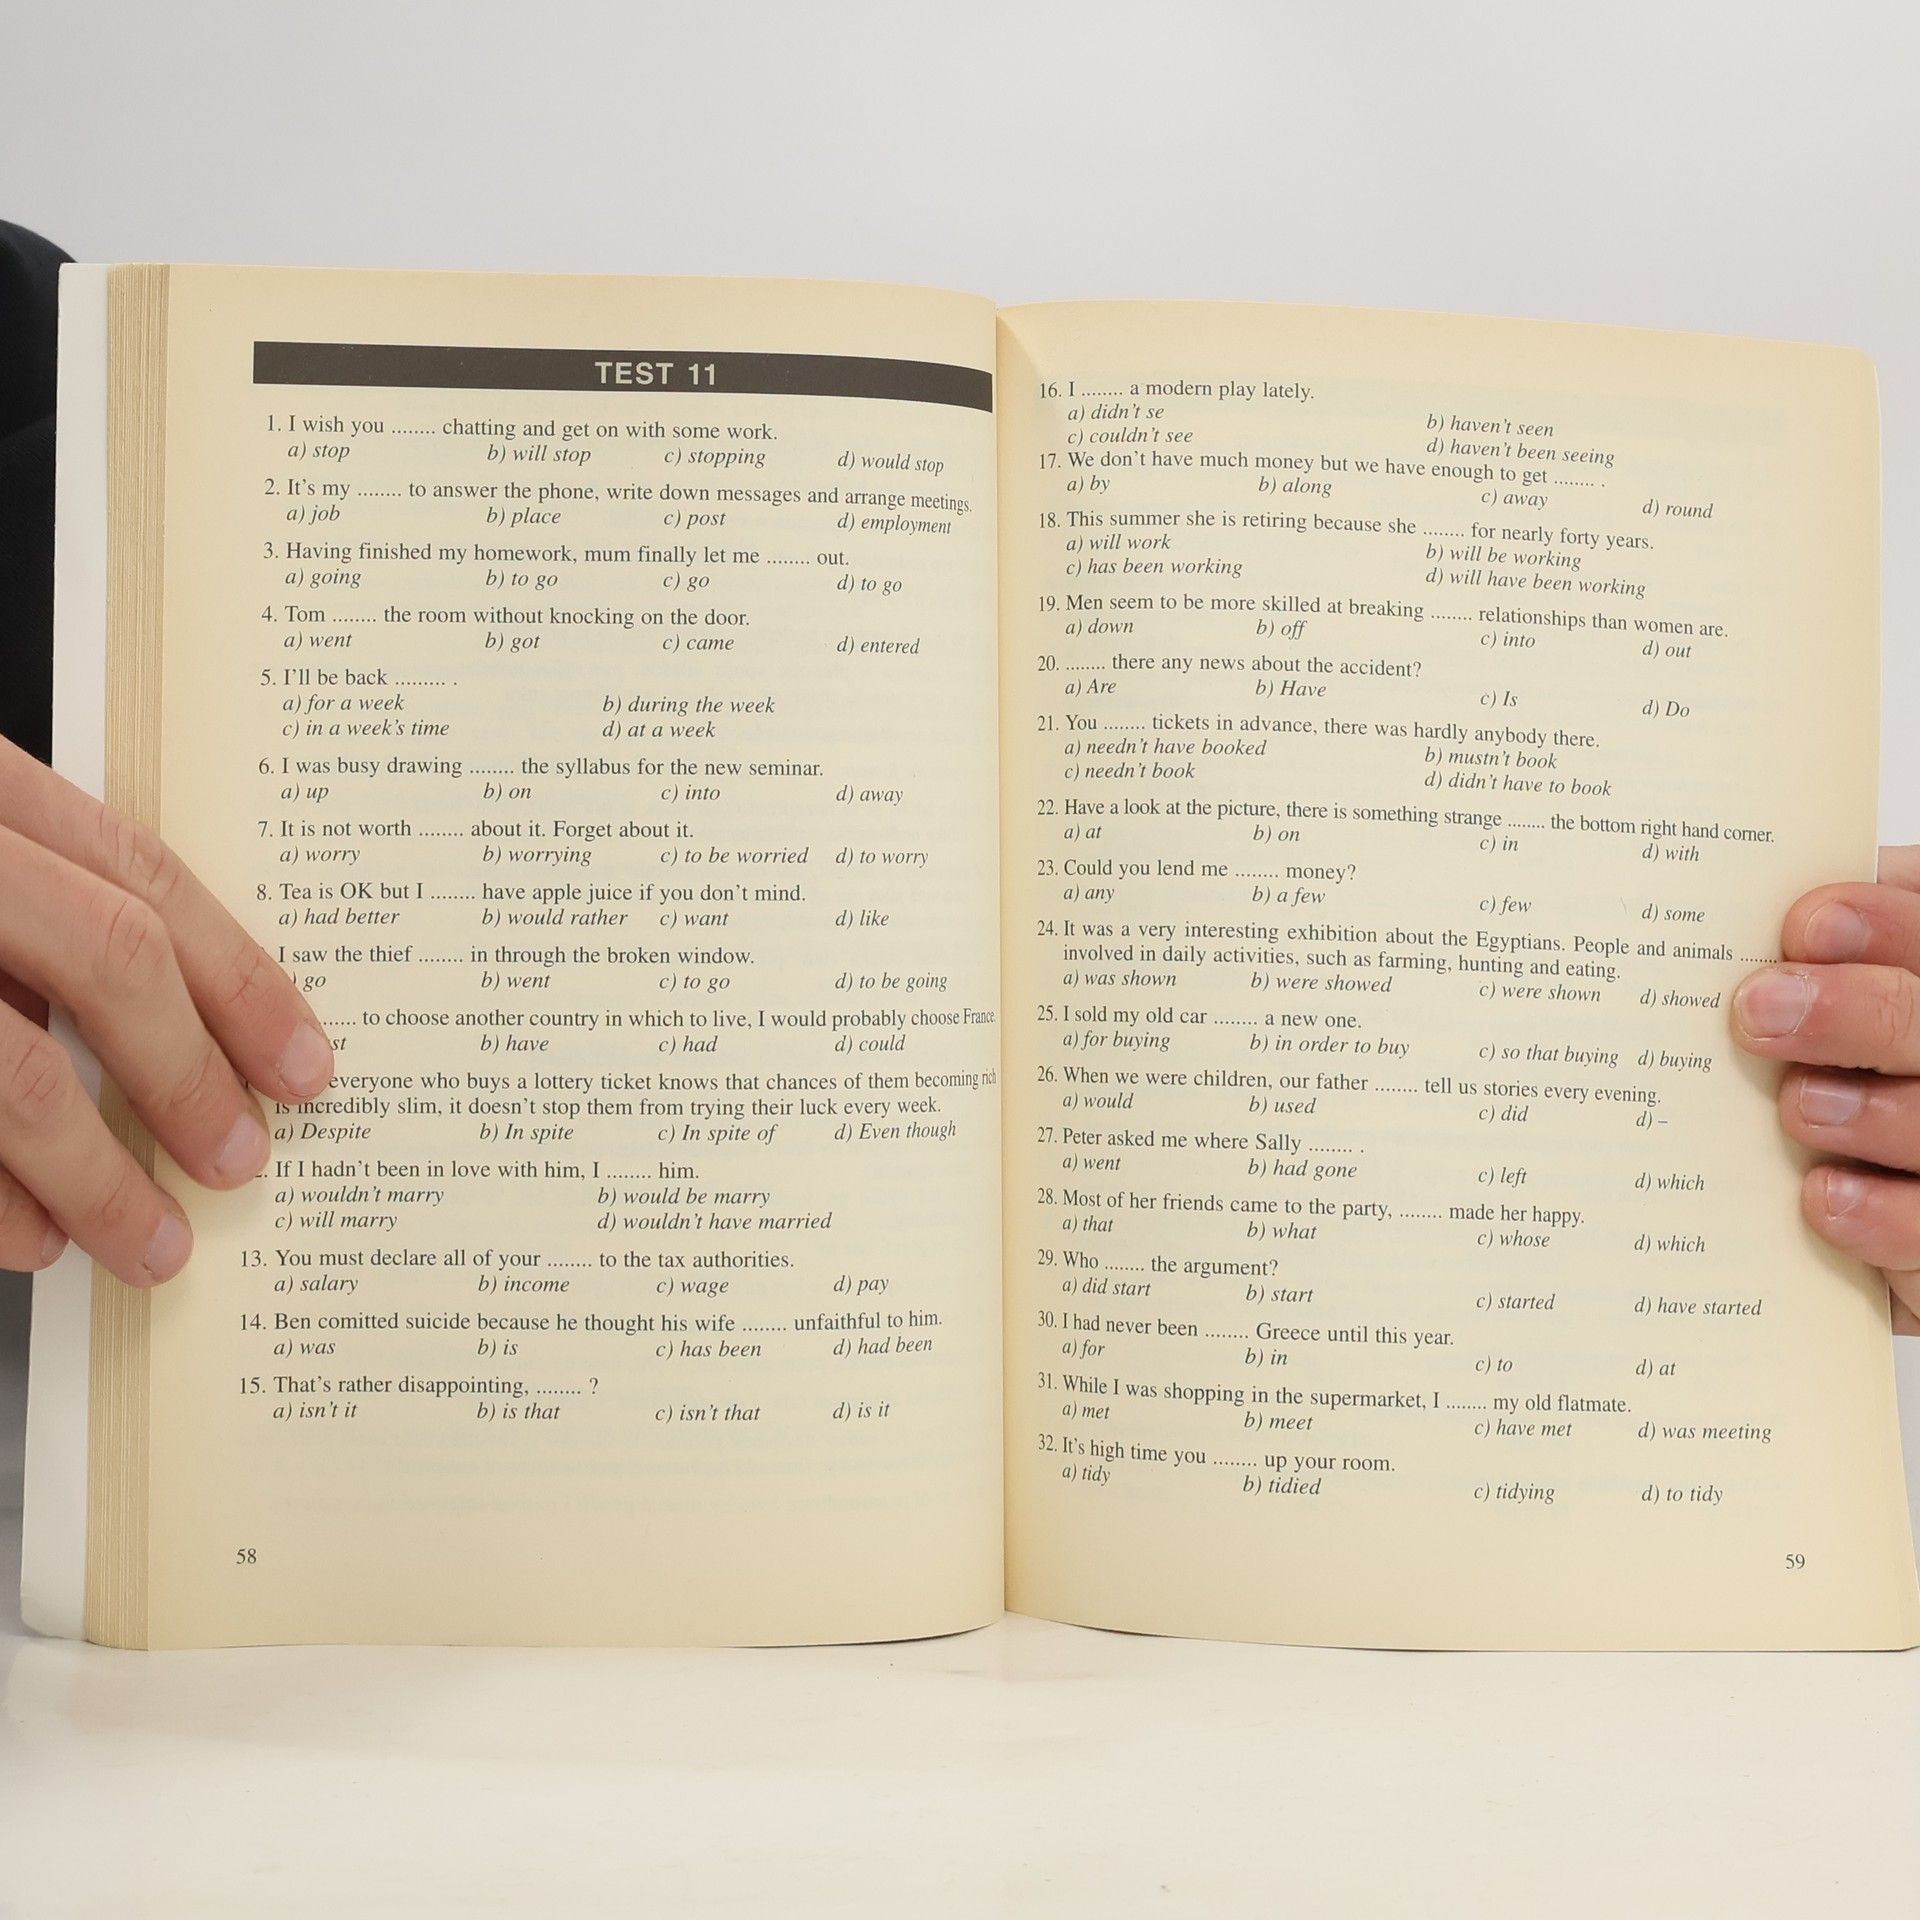 TEST 11
1. I wish you ........ chatting and get on with some work.
a) stop b) will stop c) stopping d) would stop
2. It's my ........ to answer the phone, write down messages and arrange meetings.
a) job b) place c) post d) employment
3. Having finished my homework, mum finally let me ........ out.
a) going b) to go c) go d) to go
4. Tom ........ the room without knocking on the door.
a) went b) got c) came d) entered
5. I'll be back ......... .
a) for a week b) during the week
c) in a week's time d) at a week
6. I was busy drawing ........ the syllabus for the new seminar.
a) up b) on c) into d) away
7. It is not worth ........ about it. Forget about it.
a) worry b) worrying c) to be worried d) to worry
8. Tea is OK but I ........ have apple juice if you don't mind.
a) had better b) would rather c) want d) like
I saw the thief ........ in through the broken window.
) go b) went c) to go d) to be going
...... to choose another country in which to live, I would probably choose France.
b) have c) had d) could
everyone who buys a lottery ticket knows that chances of them becoming rich
is incredibly slim, it doesn't stop them from trying their luck every week.
a) Despite b) In spite c) In spite of d) Even though
. If I hadn't been in love with him, I ........ him.
a) wouldn't marry b) would be marry
c) will marry d) wouldn't have married
13. You must declare all of your ........ to the tax authorities.
a) salary b) income c) wage d) pay
14. Ben comitted suicide because he thought his wife ........ unfaithful to him.
a) was b) is c) has been d) had been
15. That's rather disappointing, ........ ?
a) isn't it b) is that c) isn't that d) is it
58
16. I ........ a modern play lately.
a) didn't se b) haven't seen
c) couldn't see d) haven't been seeing
17. We don't have much money but we have enough to get ........ .
a) by b) along c) away d) round
18. This summer she is retiring because she ........ for nearly forty years.
a) will work b) will be working
c) has been working d) will have been working
19. Men seem to be more skilled at breaking ........ relationships than women are.
a) down b) off c) into d) out
20. ........ there any news about the accident?
a) Are b) Have c) Is d) Do
21. You ........ tickets in advance, there was hardly anybody there.
a) needn't have booked b) mustn't book
c) needn't book d) didn't have to book
22. Have a look at the picture, there is something strange ........ the bottom right hand corner.
a) at b) on c) in d) with
23. Could you lend me ........ money?
a) any b) a few c) few d) some
24. It was a very interesting exhibition about the Egyptians. People and animals ........
involved in daily activities, such as farming, hunting and eating.
a) was shown b) were showed c) were shown d) showed
25. I sold my old car ........ a new one.
a) for buying b) in order to buy c) so that buying d) buying
26. When we were children, our father ........ tell us stories every evening.
a) would b) used c) did d) –
27. Peter asked me where Sally ........ .
a) went b) had gone c) left d) which
28. Most of her friends came to the party, ........ made her happy.
a) that b) what c) whose d) which
29. Who ........ the argument?
a) did start b) start c) started d) have started
30. I had never been ........ Greece until this year.
a) for b) in c) to d) at
31. While I was shopping in the supermarket, I ........ my old flatmate.
a) met b) meet c) have met d) was meeting
32. It's high time you ........ up your room.
a) tidy b) tidied c) tidying d) to tidy
59